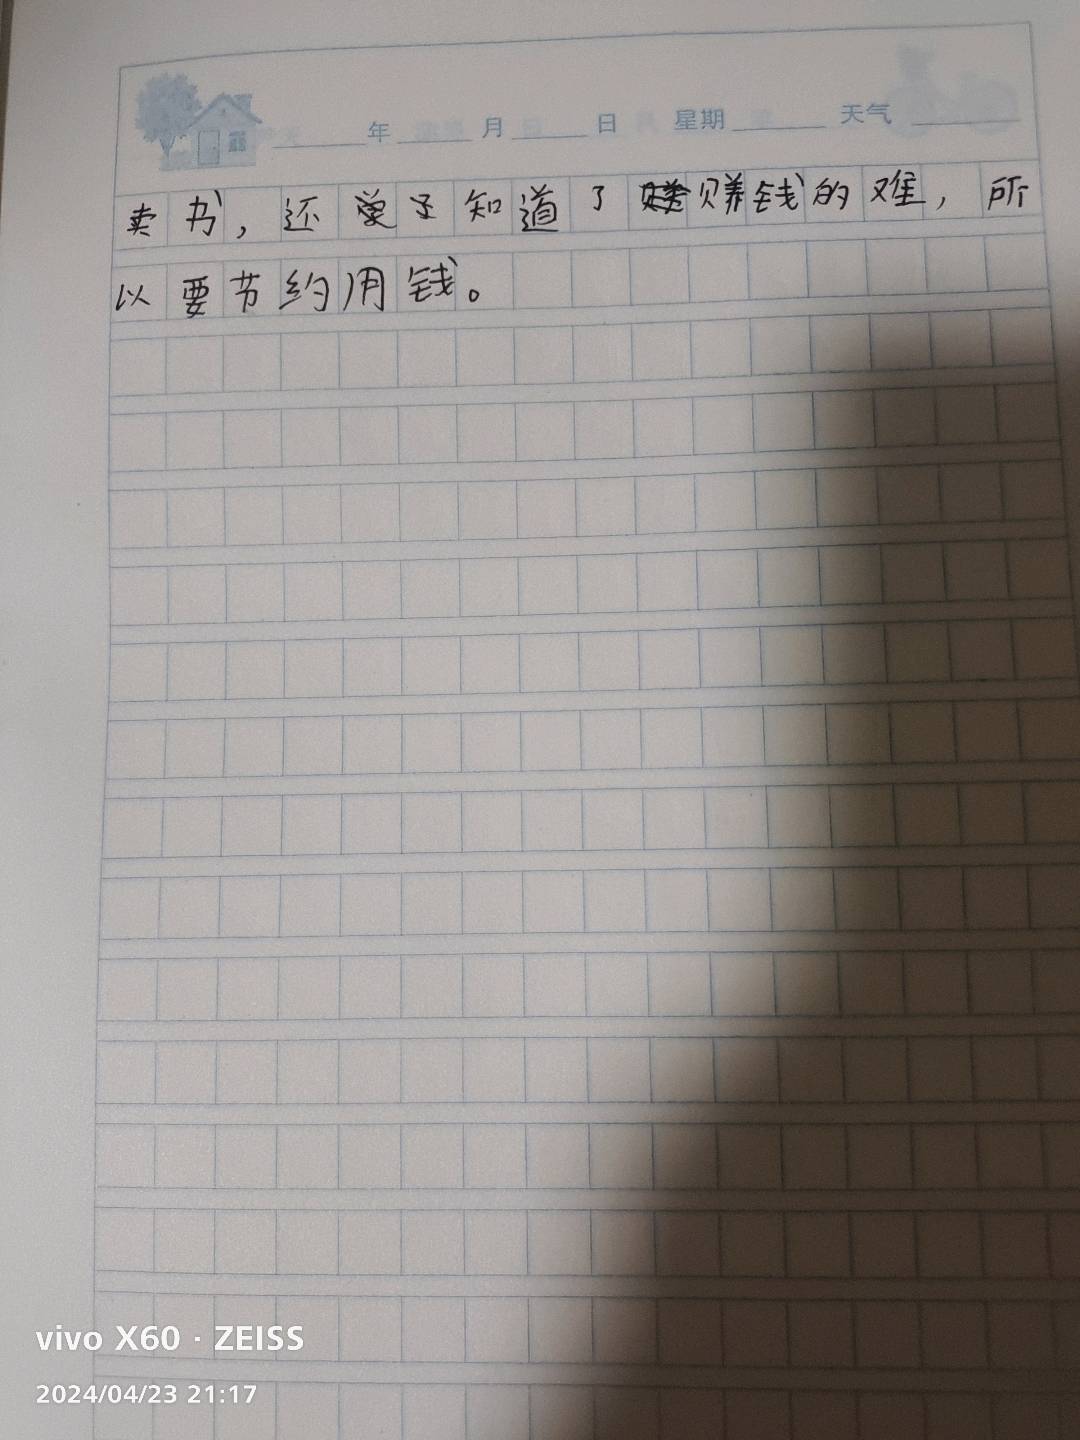 年 月 日 星期 天气
卖书，还学子知道了赚钱的难，所
以要节约用钱。
vivo X60 · ZEISS
2024/04/23 21:17